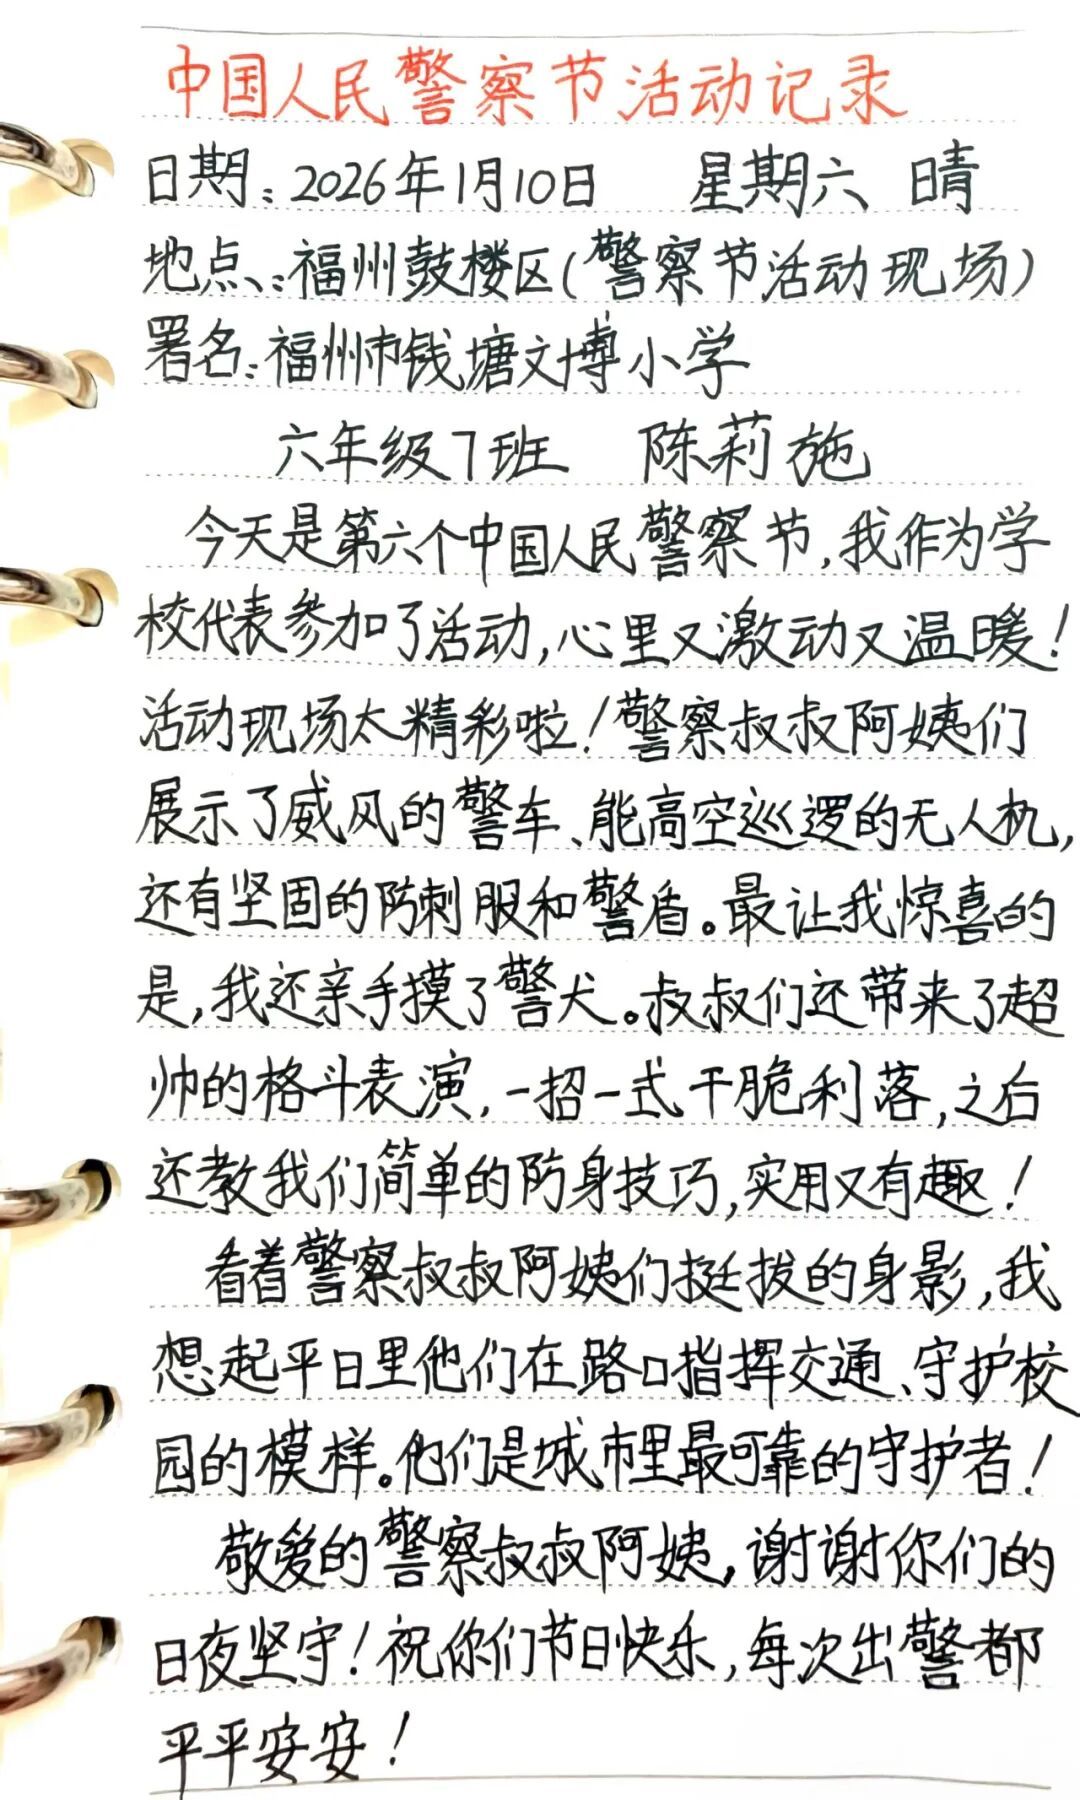 中国人民警察节活动记录
日期：2026年1月10日 星期六 晴
地点：福州鼓楼区（警察节活动现场）
署名：福州市钱塘文博小学
六年级7班 陈莉施
今天是第六个中国人民警察节，我作为学
校代表参加了活动，心里又激动又温暖！
活动现场太精彩啦！警察叔叔阿姨们
展示了威风的警车、能高空巡逻的无人机，
还有坚固的防刺服和警盾。最让我惊喜的
是，我还亲手摸了警犬。叔叔们还带来了超
帅的格斗表演，一招一式干脆利落，之后
还教我们简单的防身技巧，实用又有趣！
看着警察叔叔阿姨们挺拔的身影，我
想起平日里他们在路口指挥交通、守护校
园的模样。他们是城市里最可靠的守护者！
敬爱的警察叔叔阿姨，谢谢你们的
日夜坚守！祝你们节日快乐，每次出警都
平平安安！